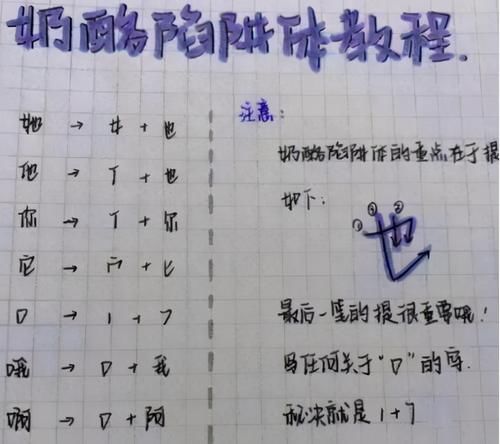 奶酪陷阱体教程.
她 → 女 + 也
他 → 亻 + 也
你 → 亻 + 尔
它 → 宀 + 匕
口 → 1 + 7
哦 → 口 + 我
啊 → 口 + 阿
注意:
奶酪陷阱体的重点在于提
如下:
① ② ③
也
最后一笔的提很重要哦!
写任何关于“口”的字.
秘诀就是 1 + 7